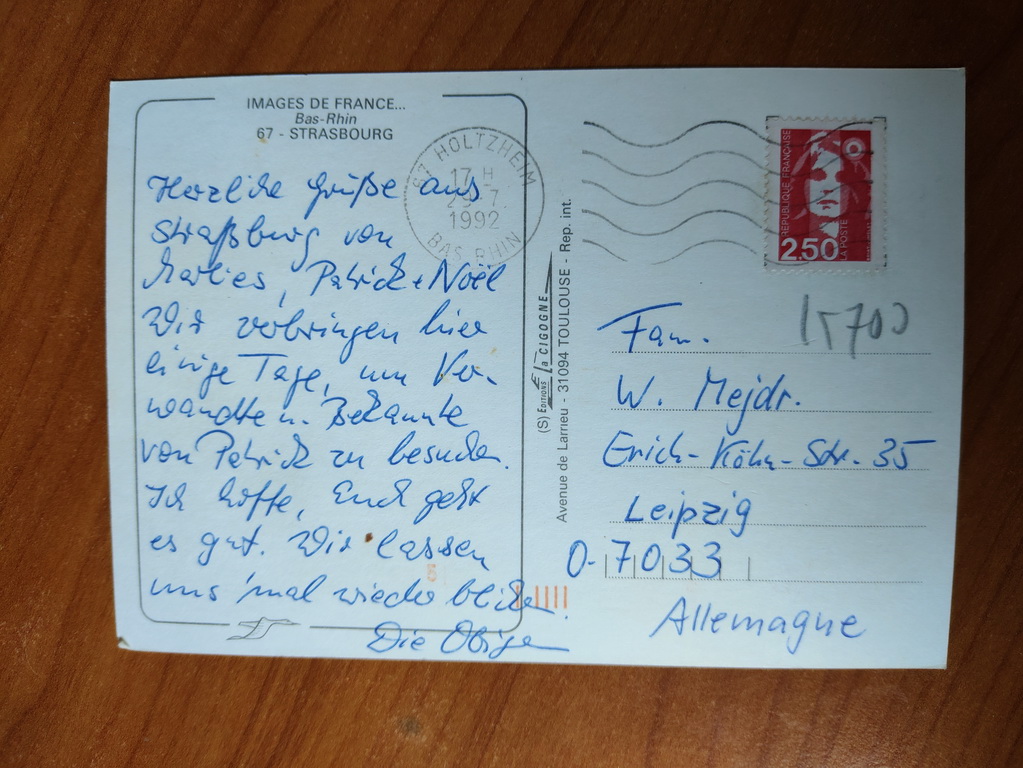 IMAGES DE FRANCE...
Bas-Rhin
67 - STRASBOURG
Herzliche Grüße aus
Straßburg von
Marlies, Patrick + Noël
Wir verbringen hier
einige Tage, um Ver-
wandte u. Bekannte
von Patrick zu besuchen.
Ich hoffe, Euch geht
es gut. Wir lassen
uns 'mal wieder blicken.
Die Obigen
67 HOLTZHEIM
17 H
29-7
1992
BAS RHIN
(S) EDITIONS La CIGOGNE
Avenue de Larrieu - 31094 TOULOUSE - Rep. int.
REPUBLIQUE FRANÇAISE
2,50
LA POSTE
15700
Fam.
W. Mejdr.
Erich-Köhn-Str. 35
Leipzig
O-7033
Allemagne
5